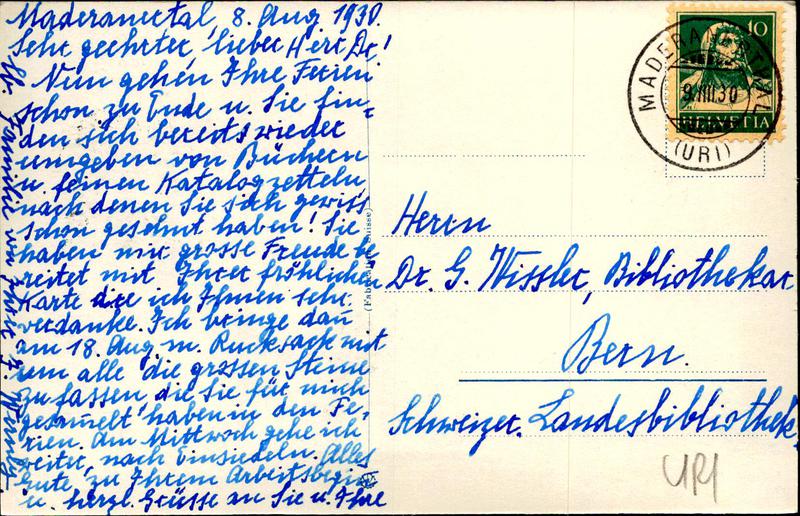 Maderanertal, 8. Aug. 1930.
Sehr geehrter, lieber Herr Dr.!
Nun gehen Ihre Ferien
schon zu Ende u. Sie fin-
den sich bereits wieder
umgeben von Büchern
u. feinen Katalogzetteln,
nach denen Sie sich gewiss
schon gesehnt haben! Sie
haben mir grosse Freude be
reitet mit Ihrer fröhlichen
Karte die ich Ihnen sehr
verdanke. Ich bringe dan̄
am 18. Aug. m. Rucksack mit
um alle die grossen Steine
zu fassen die Sie für mich
gesam̄elt haben in den Fe-
rien. Am Mittwoch gehe ich
weiter, nach Einsiedeln. Alles
Gute, zu Ihrem Arbeitsbeginn
u. herzl. Grüsse an Sie u. Ihre
w. Familie von Ihrer
MADERANERTHAL
9.VIII.30
(URI)
10
HELVETIA
Herrn
Dr. G. Wissler, Bibliothekar
Bern.
Schweizer. Landesbibliothek.
URI